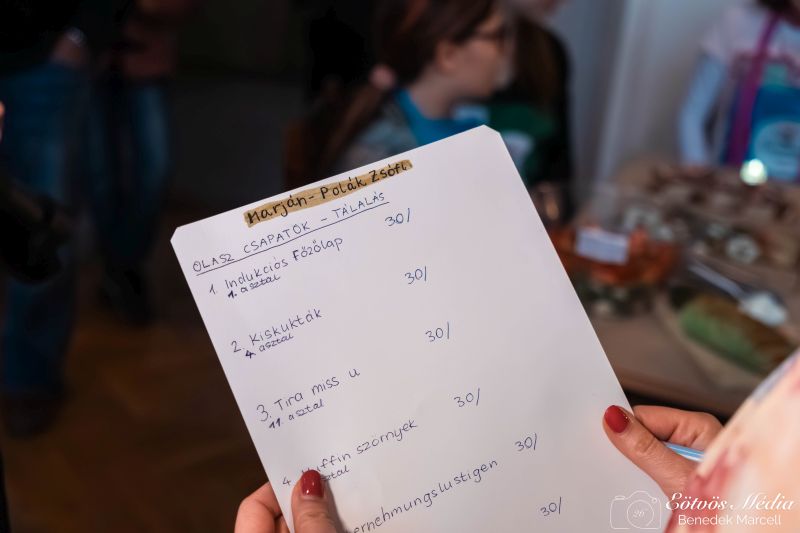 Marján-Polák Zsófi
OLASZ CSAPATOK - TÁLALÁS
1. Indukciós Főzőlap 30/
1. asztal
2. Kiskukták 30/
4. asztal
3. Tira miss u 30/
11. asztal
4. Muffin szörnyek 30/
asztal
ernehmungslustigen 30/
30/
26'
Eötvös Média
Benedek Marcell